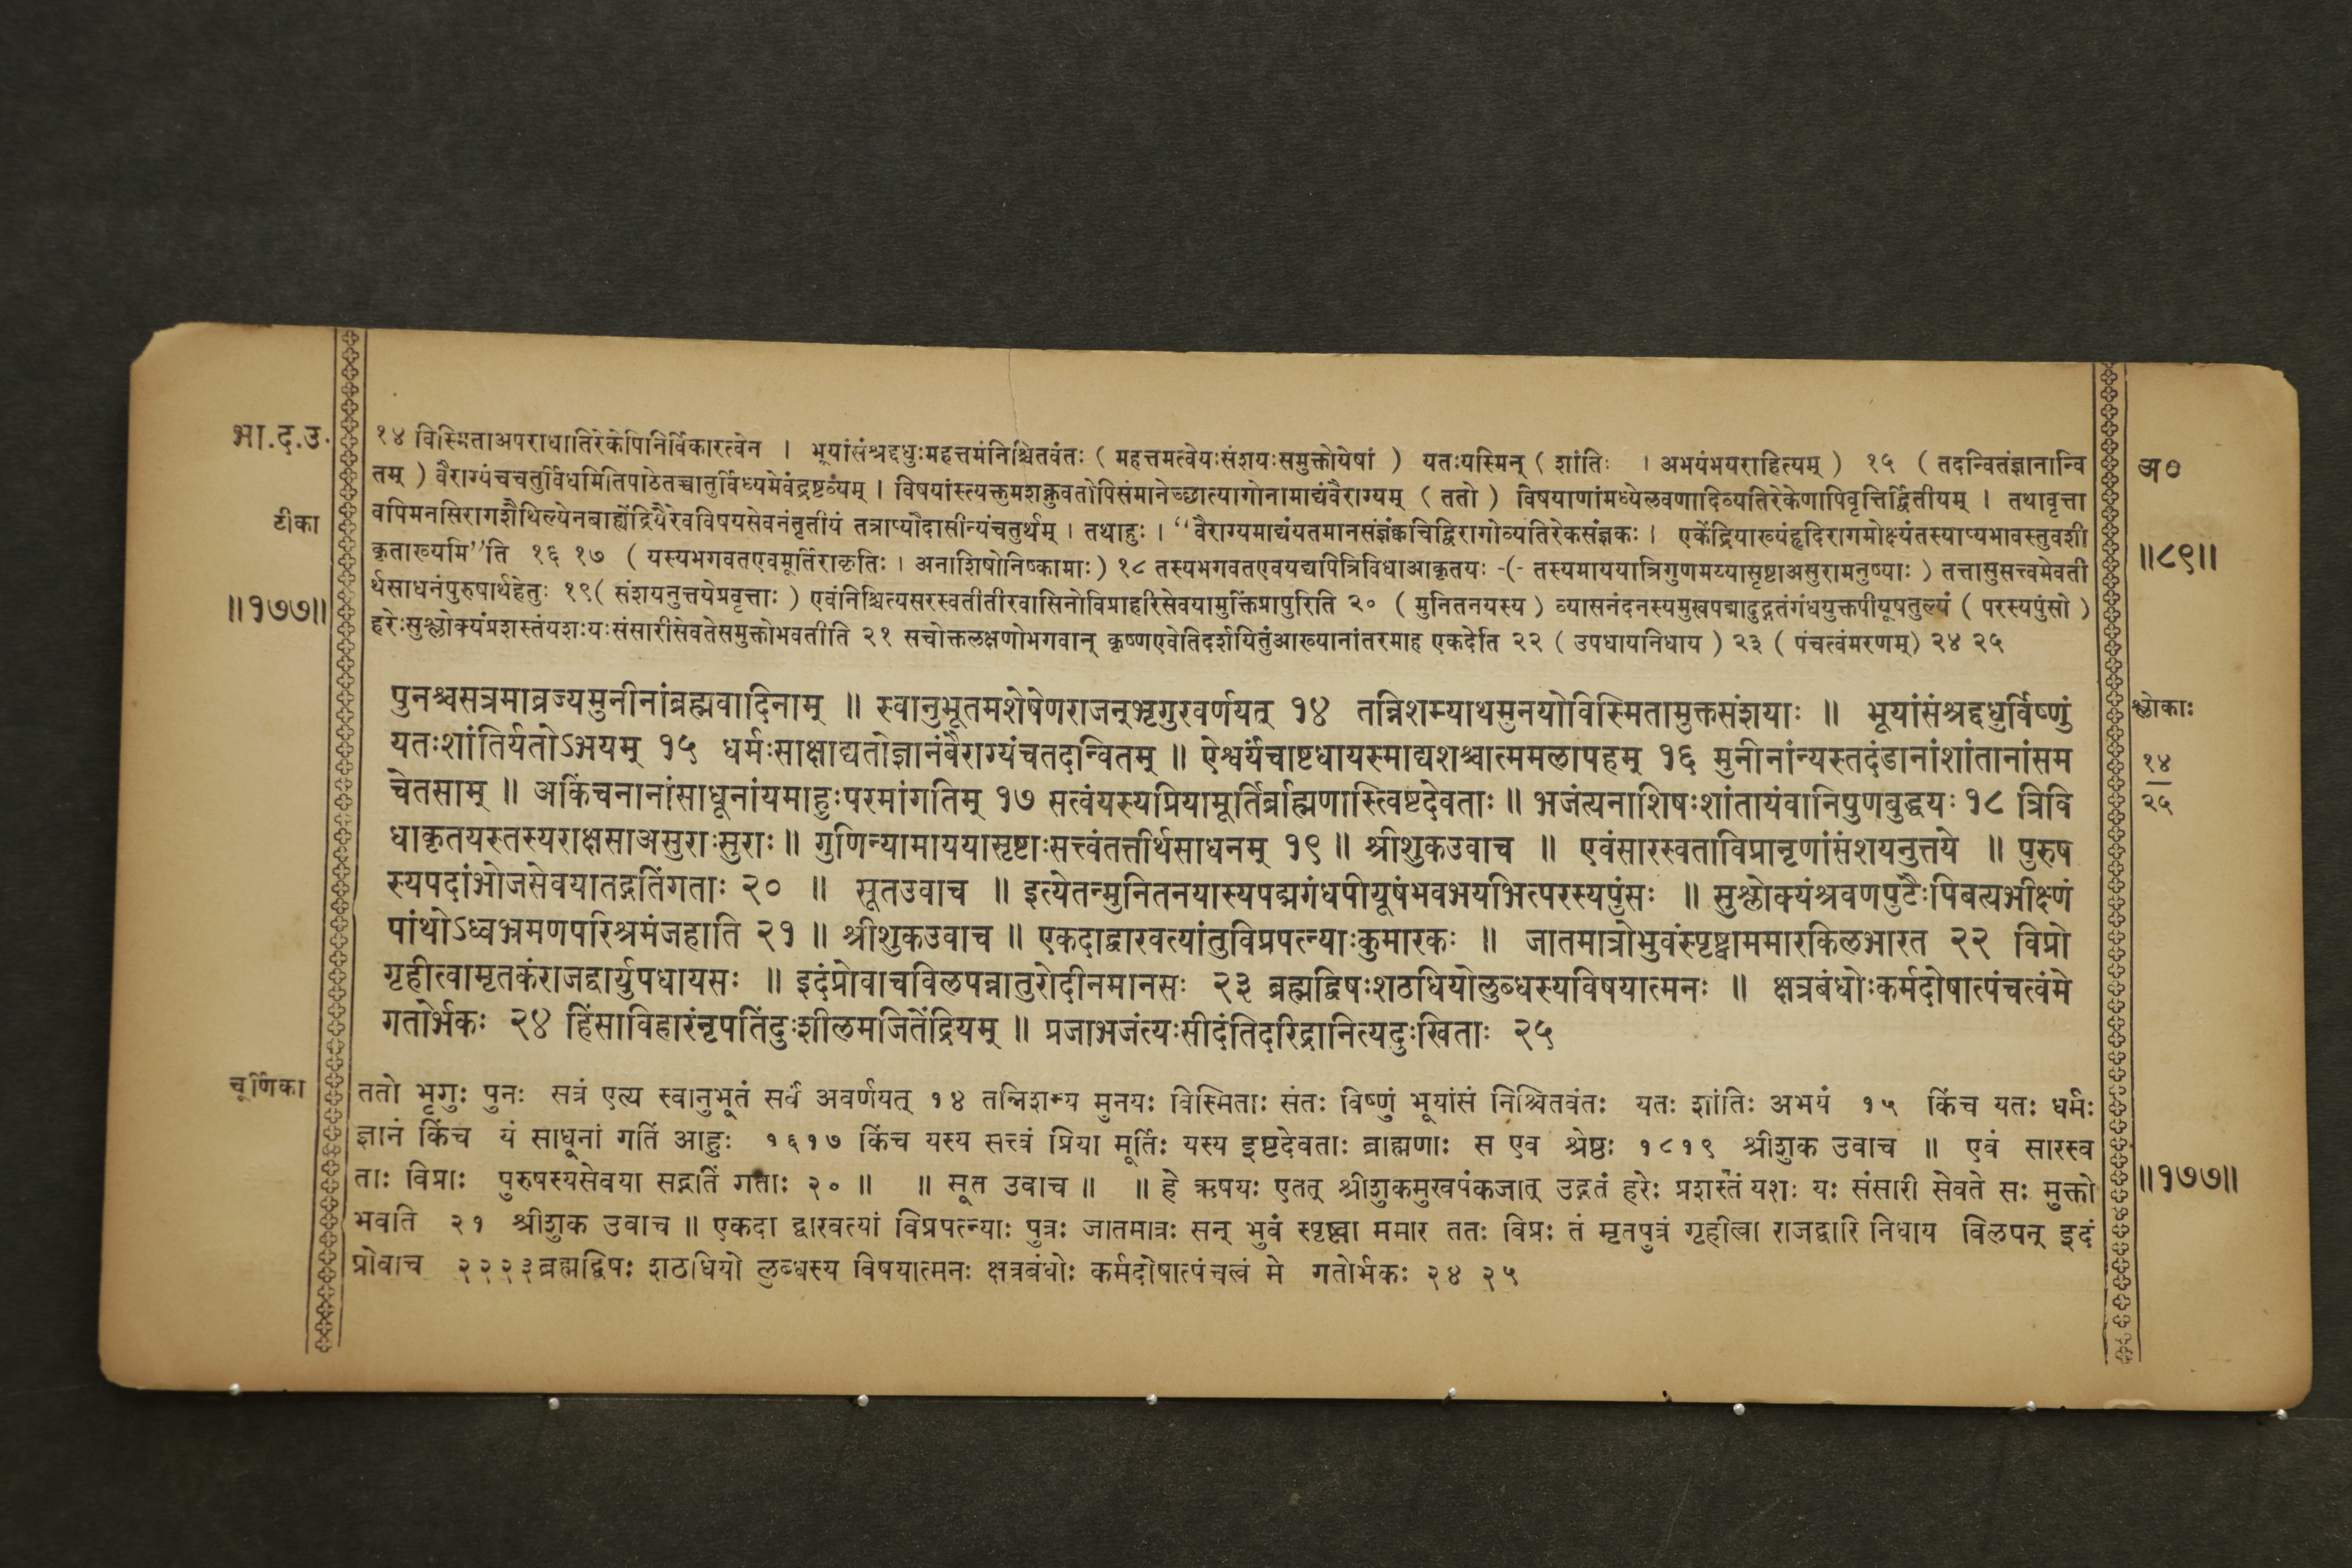 भा.द.उ.
टीका
॥१७७॥
१४ विस्मिताअपराधातिरेकेपिनिर्विकारत्वेन । भूयांसंश्रद्दधुःमहत्तमंनिश्चितवंतः ( महत्तमत्वेयःसंशयःसमुक्तोयेषां ) यतःयस्मिन् ( शांतिः । अभयंभयराहित्यम् ) १५ ( तदन्वितंज्ञानान्वि
तम् ) वैराग्यंचचतुर्विधमितिपाठेतच्चातुर्विध्यमेवंद्रष्टव्यम् । विषयांस्त्यक्तुमशक्नुवतोपिसंमानेच्छात्यागोनामाद्यंवैराग्यम् ( ततो ) विषयाणांमध्येलवणादिव्यतिरेकेणापिवृत्तिर्द्वितीयम् । तथावृत्ता
वपिमनसिरागशैथिल्येनबाह्येंद्रियैरेवविषयसेवनंतृतीयं तत्राप्यौदासीन्यंचतुर्थम् । तथाहुः । “वैराग्यमाद्यंयतमानसंज्ञंक्वचिद्विरागोव्यतिरेकसंज्ञकः । एकेंद्रियाख्यंहृदिरागमोक्ष्यंतस्याप्यभावस्तुवशी
कृताख्यमि”ति १६ १७ ( यस्यभगवतएवमूर्तिराकृतिः । अनाशिषोनिष्कामाः ) १८ तस्यभगवतएवयद्यपित्रिविधाआकृतयः -(- तस्यमाययात्रिगुणमय्यासृष्टाअसुरामनुष्याः ) तत्तासुसत्त्वमेवती
र्थसाधनंपुरुषार्थहेतुः १९( संशयनुत्तयेप्रवृत्ताः ) एवंनिश्चित्यसरस्वतीतीरवासिनोविप्राहरिसेवयामुक्तिंप्रापुरिति २० ( मुनितनयस्य ) व्यासनंदनस्यमुखपद्मादुद्गतंगंधयुक्तपीयूषतुल्यं ( परस्यपुंसो )
हरेःसुश्लोक्यंप्रशस्तंयशःयःसंसारीसेवतेसमुक्तोभवतीति २१ सचोक्तलक्षणोभगवान् कृष्णएवेतिदर्शयितुंआख्यानांतरमाह एकदेति २२ ( उपधायनिधाय ) २३ ( पंचत्वंमरणम्) २४ २५
अ०
॥८९॥
पुनश्चसत्रमाव्रज्यमुनीनांब्रह्मवादिनाम् ॥ स्वानुभूतमशेषेणराजन्भृगुरवर्णयत् १४ तन्निशम्याथमुनयोविस्मितामुक्तसंशयाः ॥ भूयांसंश्रद्दधुर्विष्णुं
यतःशांतिर्यतोऽभयम् १५ धर्मःसाक्षाद्यतोज्ञानंवैराग्यंचतदन्वितम् ॥ ऐश्वर्यंचाष्टधायस्माद्यशश्चात्ममलापहम् १६ मुनीनांन्यस्तदंडानांशांतानांसम
चेतसाम् ॥ अकिंचनानांसाधूनांयमाहुःपरमांगतिम् १७ सत्वंयस्यप्रियामूर्तिर्ब्राह्मणास्त्विष्टदेवताः ॥ भजंत्यनाशिषःशांतायंवानिपुणबुद्धयः १८ त्रिवि
धाकृतयस्तस्यराक्षसाअसुराःसुराः ॥ गुणिन्यामाययासृष्टाःसत्त्वंतत्तीर्थसाधनम् १९ ॥ श्रीशुकउवाच ॥ एवंसारस्वताविप्रानृणांसंशयनुत्तये ॥ पुरुष
स्यपदांभोजसेवयातद्गतिंगताः २० ॥ सूतउवाच ॥ इत्येतन्मुनितनयास्यपद्मगंधपीयूषंभवभयभित्परस्यपुंसः ॥ सुश्लोक्यंश्रवणपुटैःपिबत्यभीक्ष्णं
पांथोऽध्वभ्रमणपरिश्रमंजहाति २१ ॥ श्रीशुकउवाच ॥ एकदाद्वारवत्यांतुविप्रपत्न्याःकुमारकः ॥ जातमात्रोभुवंस्पृष्ट्वाममारकिलभारत २२ विप्रो
गृहीत्वामृतकंराजद्वार्युपधायसः ॥ इदंप्रोवाचविलपन्नातुरोदीनमानसः २३ ब्रह्मद्विषःशठधियोलुब्धस्यविषयात्मनः ॥ क्षत्रबंधोःकर्मदोषात्पंचत्वंमे
गतोर्भकः २४ हिंसाविहारंनृपतिंदुःशीलमजितेंद्रियम् ॥ प्रजाभजंत्यःसीदंतिदरिद्रानित्यदुःखिताः २५
श्लोकाः
१४
२५
चूर्णिका
ततो भृगुः पुनः सत्रं एत्य स्वानुभूतं सर्वं अवर्णयत् १४ तन्निशम्य मुनयः विस्मिताः संतः विष्णुं भूयांसं निश्चितवंतः यतः शांतिः अभयं १५ किंच यतः धर्मः
ज्ञानं किंच यं साधूनां गतिं आहुः १६१७ किंच यस्य सत्त्वं प्रिया मूर्तिः यस्य इष्टदेवताः ब्राह्मणाः स एव श्रेष्ठः १८१९ श्रीशुक उवाच ॥ एवं सारस्व
ताः विप्राः पुरुषस्यसेवया सद्गतिं गताः २० ॥ ॥ सूत उवाच ॥ ॥ हे ऋषयः एतत् श्रीशुकमुखपंकजात् उद्गतं हरेः प्रशस्तं यशः यः संसारी सेवते सः मुक्तो
भवति २१ श्रीशुक उवाच ॥ एकदा द्वारवत्यां विप्रपत्न्याः पुत्रः जातमात्रः सन् भुवं स्पृष्ट्वा ममार ततः विप्रः तं मृतपुत्रं गृहीत्वा राजद्वारि निधाय विलपन् इदं
प्रोवाच २२२३ब्रह्मद्विषः शठधियो लुब्धस्य विषयात्मनः क्षत्रबंधोः कर्मदोषात्पंचत्वं मे गतोर्भकः २४ २५
॥१७७॥